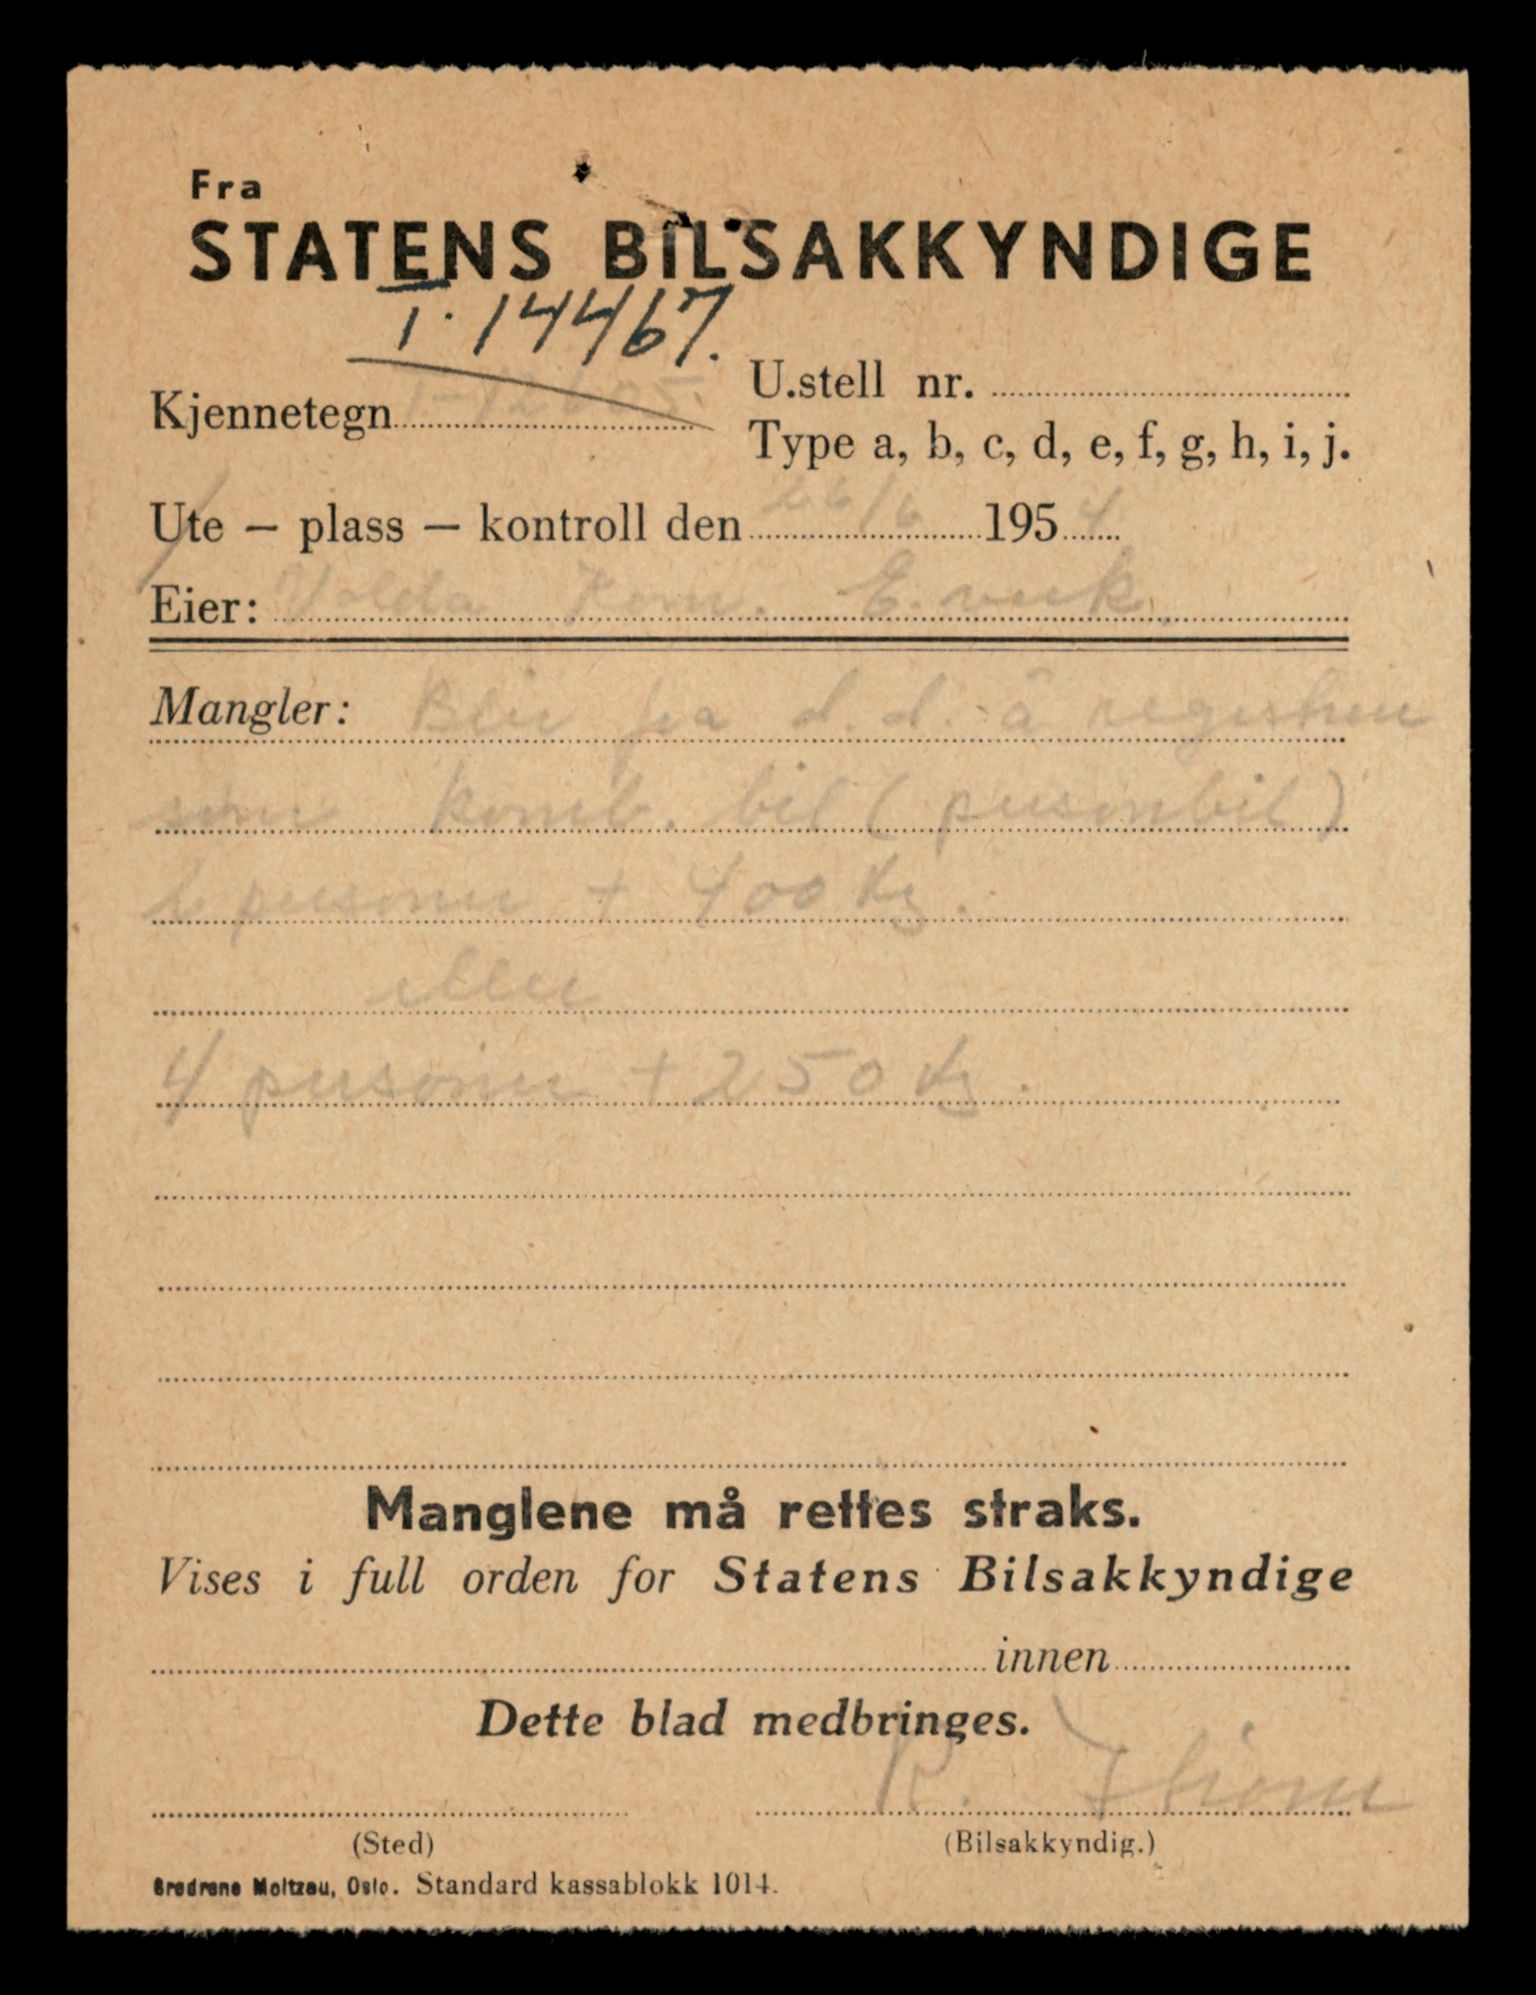 Fra
STATENS BILSAKKYNDIGE
T-14467.
Kjennetegn T-12605.
U.stell nr.
Type a, b, c, d, e, f, g, h, i, j.
Ute – plass – kontroll den 26/6 1954
Eier: Volda Kom. E.verk.
Mangler: Blir fra d.d. å registrere
som komb. bil (personbil)
2 personer + 400 kg.
eller
4 personer + 250 kg.
Manglene må rettes straks.
Vises i full orden for Statens Bilsakkyndige
innen
Dette blad medbringes.
K.
(Sted)
(Bilsakkyndig.)
Brødrene Moltzau, Oslo. Standard kassablokk 1014.